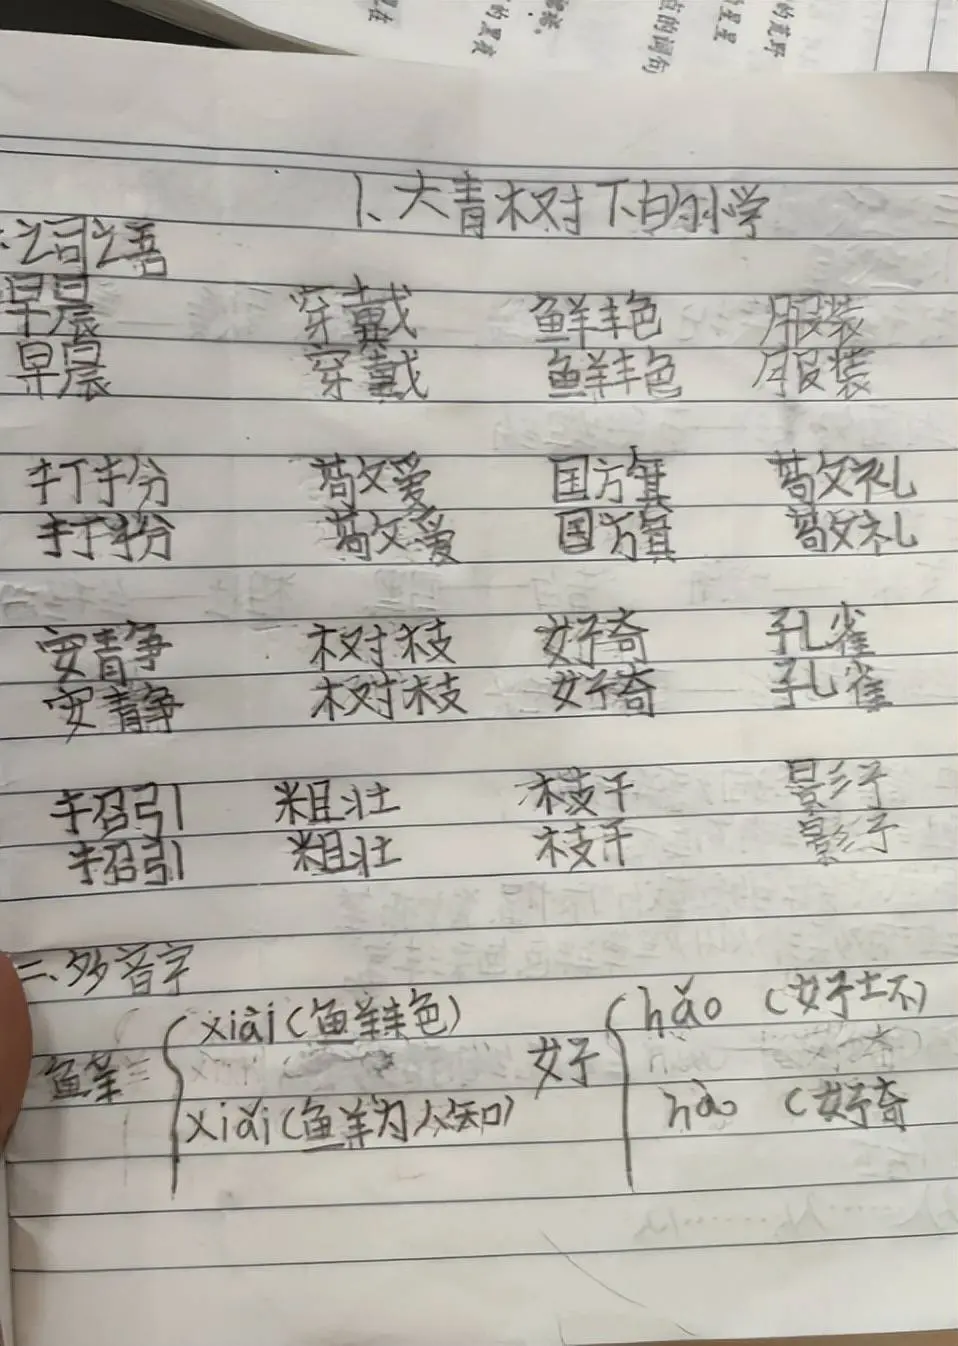 1、大青树下的小学
词语
早晨 穿戴 鲜艳 服装
早晨 穿戴 鲜艳 服装
打扮 敬爱 国旗 敬礼
打扮 敬爱 国旗 敬礼
安静 树枝 好奇 孔雀
安静 树枝 好奇 孔雀
招引 粗壮 枝干 影子
招引 粗壮 枝干 影子
二、多音字
鲜 xiāi(鲜艳) 好 hǎo (好坏)
xiǎi(鲜为人知) hào (好奇